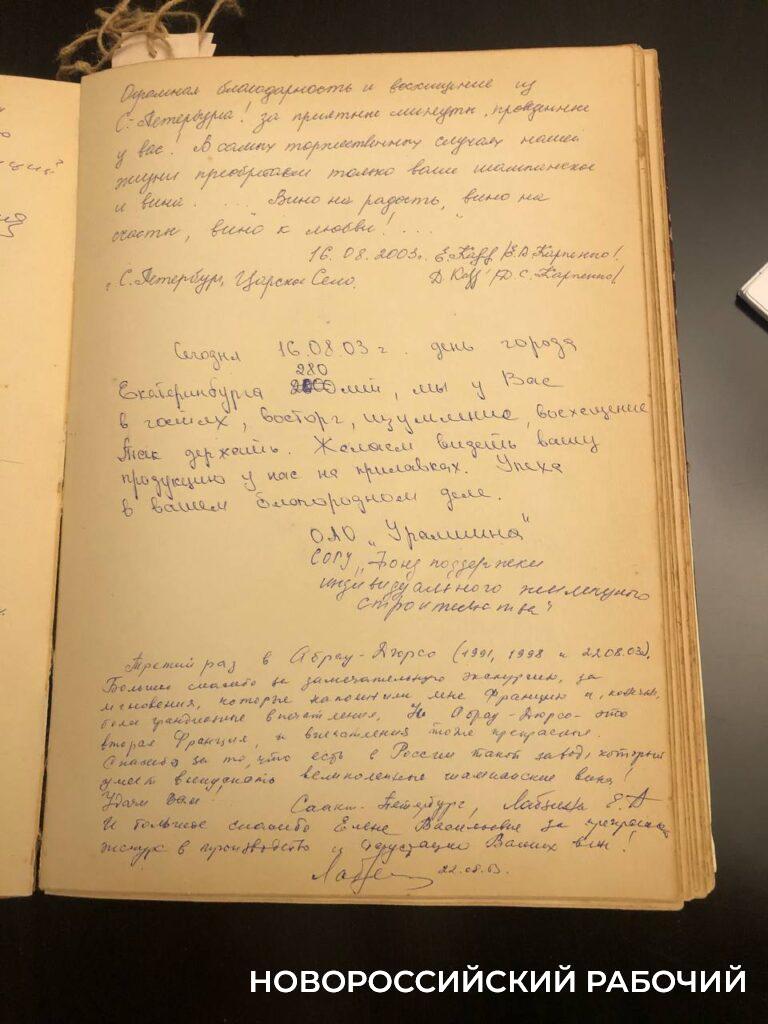 Огромная благодарность и восхищение из
С-Петербурга! за приятные минуты, проведенные
у вас! В самых торжественных случаях нашей
жизни преобретаем только ваше шампанское
и вина. ... Вино на радость, вино на
счастье, вино к любви! ...
16.08.2003г. Е. Карр /Е.А. Карпенко/.
С. Петербург, Царское Село. /Д.С. Карпенко/
Сегодня 16.08.03 г. день города
280
Екатеринбурга лет, мы у Вас
в гостях, восторг, изумление, восхещение
Так держать. Желаем видеть вашу
продукцию у нас на прилавках. Успеха
в вашем благородном деле.
ОАО „Уралшина"
СОГУ „Фонд поддержки
индивидуального жилищного
строительства"
Третий раз в Абрау-Дюрсо (1991, 1998 и 22.08.03г).
Большое спасибо за замечательную экскурсию, за
мгновения, которые напомнили мне Францию и, конечно,
были грандиозные впечатления. Но Абрау-Дюрсо - это
вторая Франция, и впечатления тоже прекрасные.
Спасибо за то, что есть в России такой завод, который
умеет выпускать великолепные шампанские вина!
Удачи Вам! Санкт-Петербург, Е.А
И большое спасибо Елене Васильевне за прекрасный
экскурс в производство и дегустацию Ваших вин!
22.08.03.
НОВОРОССИЙСКИЙ РАБОЧИЙ